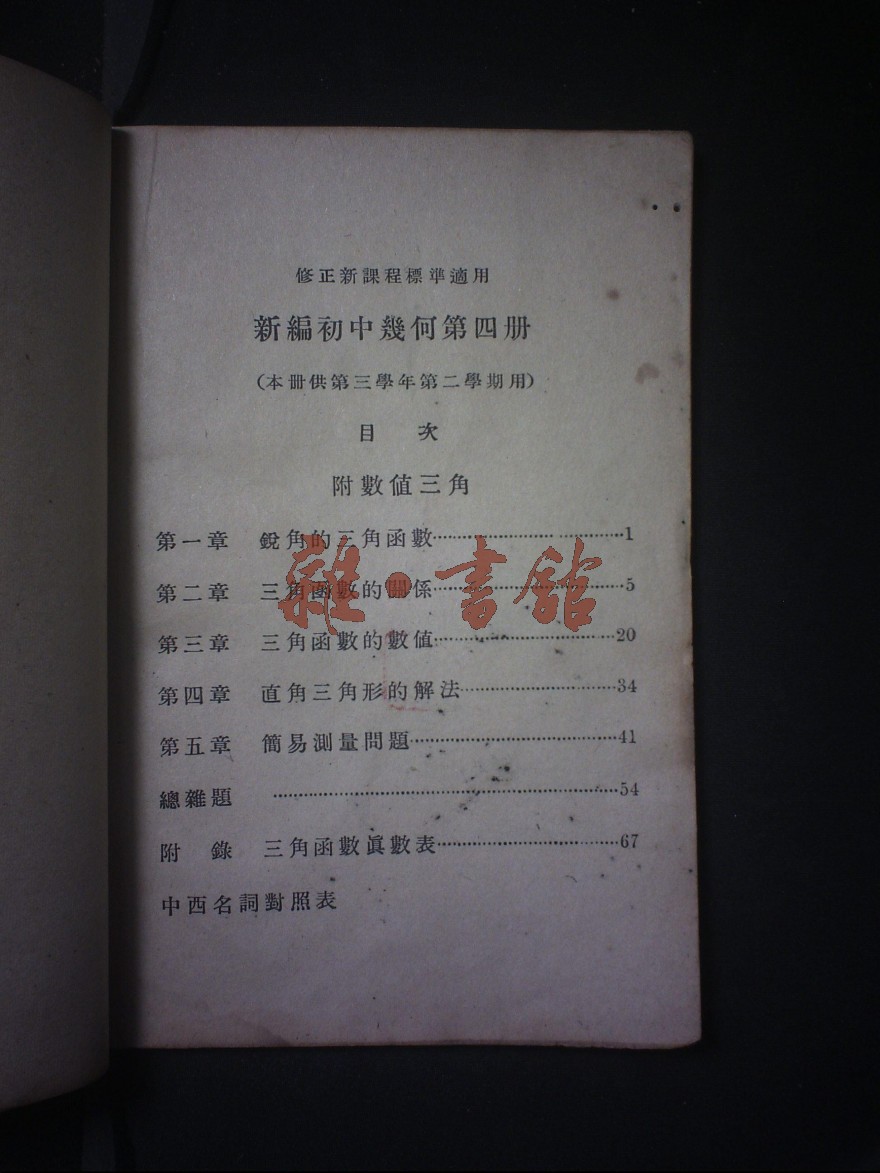 修正新課程標準適用
新編初中幾何第四册
(本冊供第三學年第二學期用)
目　次
附數值三角
第一章　銳角的三角函數……………………1
第二章　三角函數的關係……………………5
第三章　三角函數的數值……………………20
第四章　直角三角形的解法…………………34
第五章　簡易測量問題………………………41
總雜題　……………………………………54
附　錄　三角函數眞數表……………………67
中西名詞對照表
雜·書館